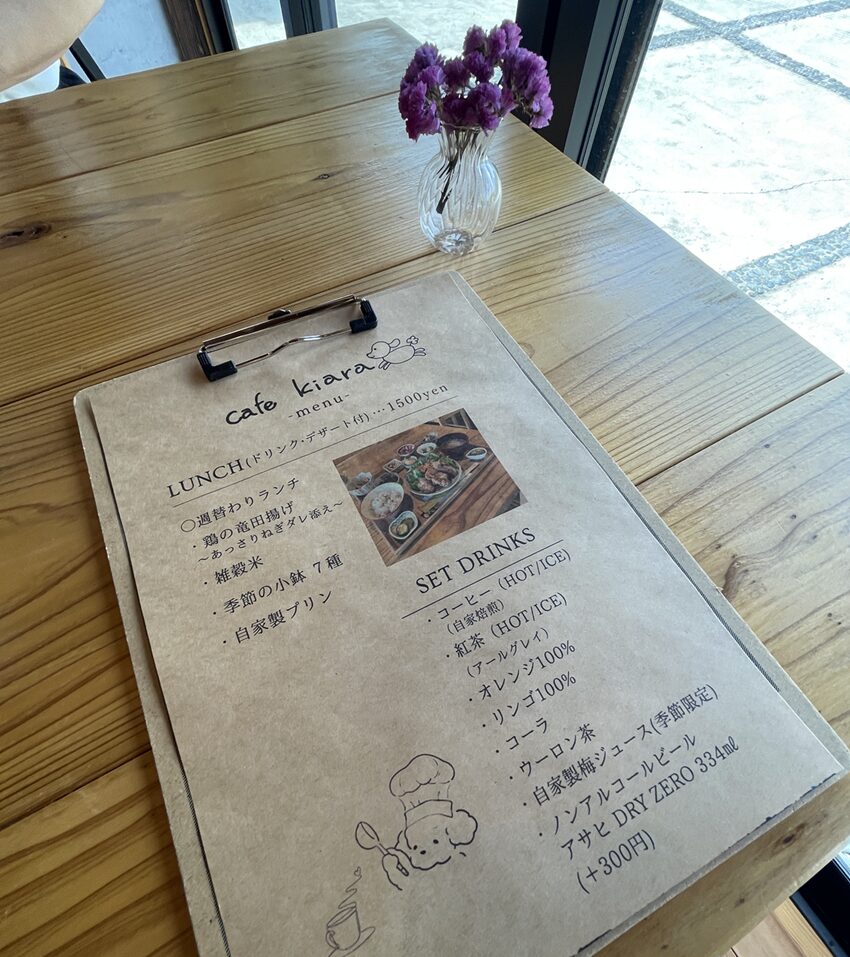 cafe kiara
-menu-
LUNCH(ドリンク・デザート付)…1500yen
〇週替わりランチ
・鶏の竜田揚げ
〜あっさりねぎダレ添え〜
・雑穀米
・季節の小鉢 7種
・自家製プリン
SET DRINKS
・コーヒー (HOT/ICE)
(自家焙煎)
・紅茶 (HOT/ICE)
(アールグレイ)
・オレンジ100%
・リンゴ100%
・コーラ
・ウーロン茶
・自家製梅ジュース(季節限定)
・ノンアルコールビール
アサヒ DRY ZERO 334㎖
(+300円)